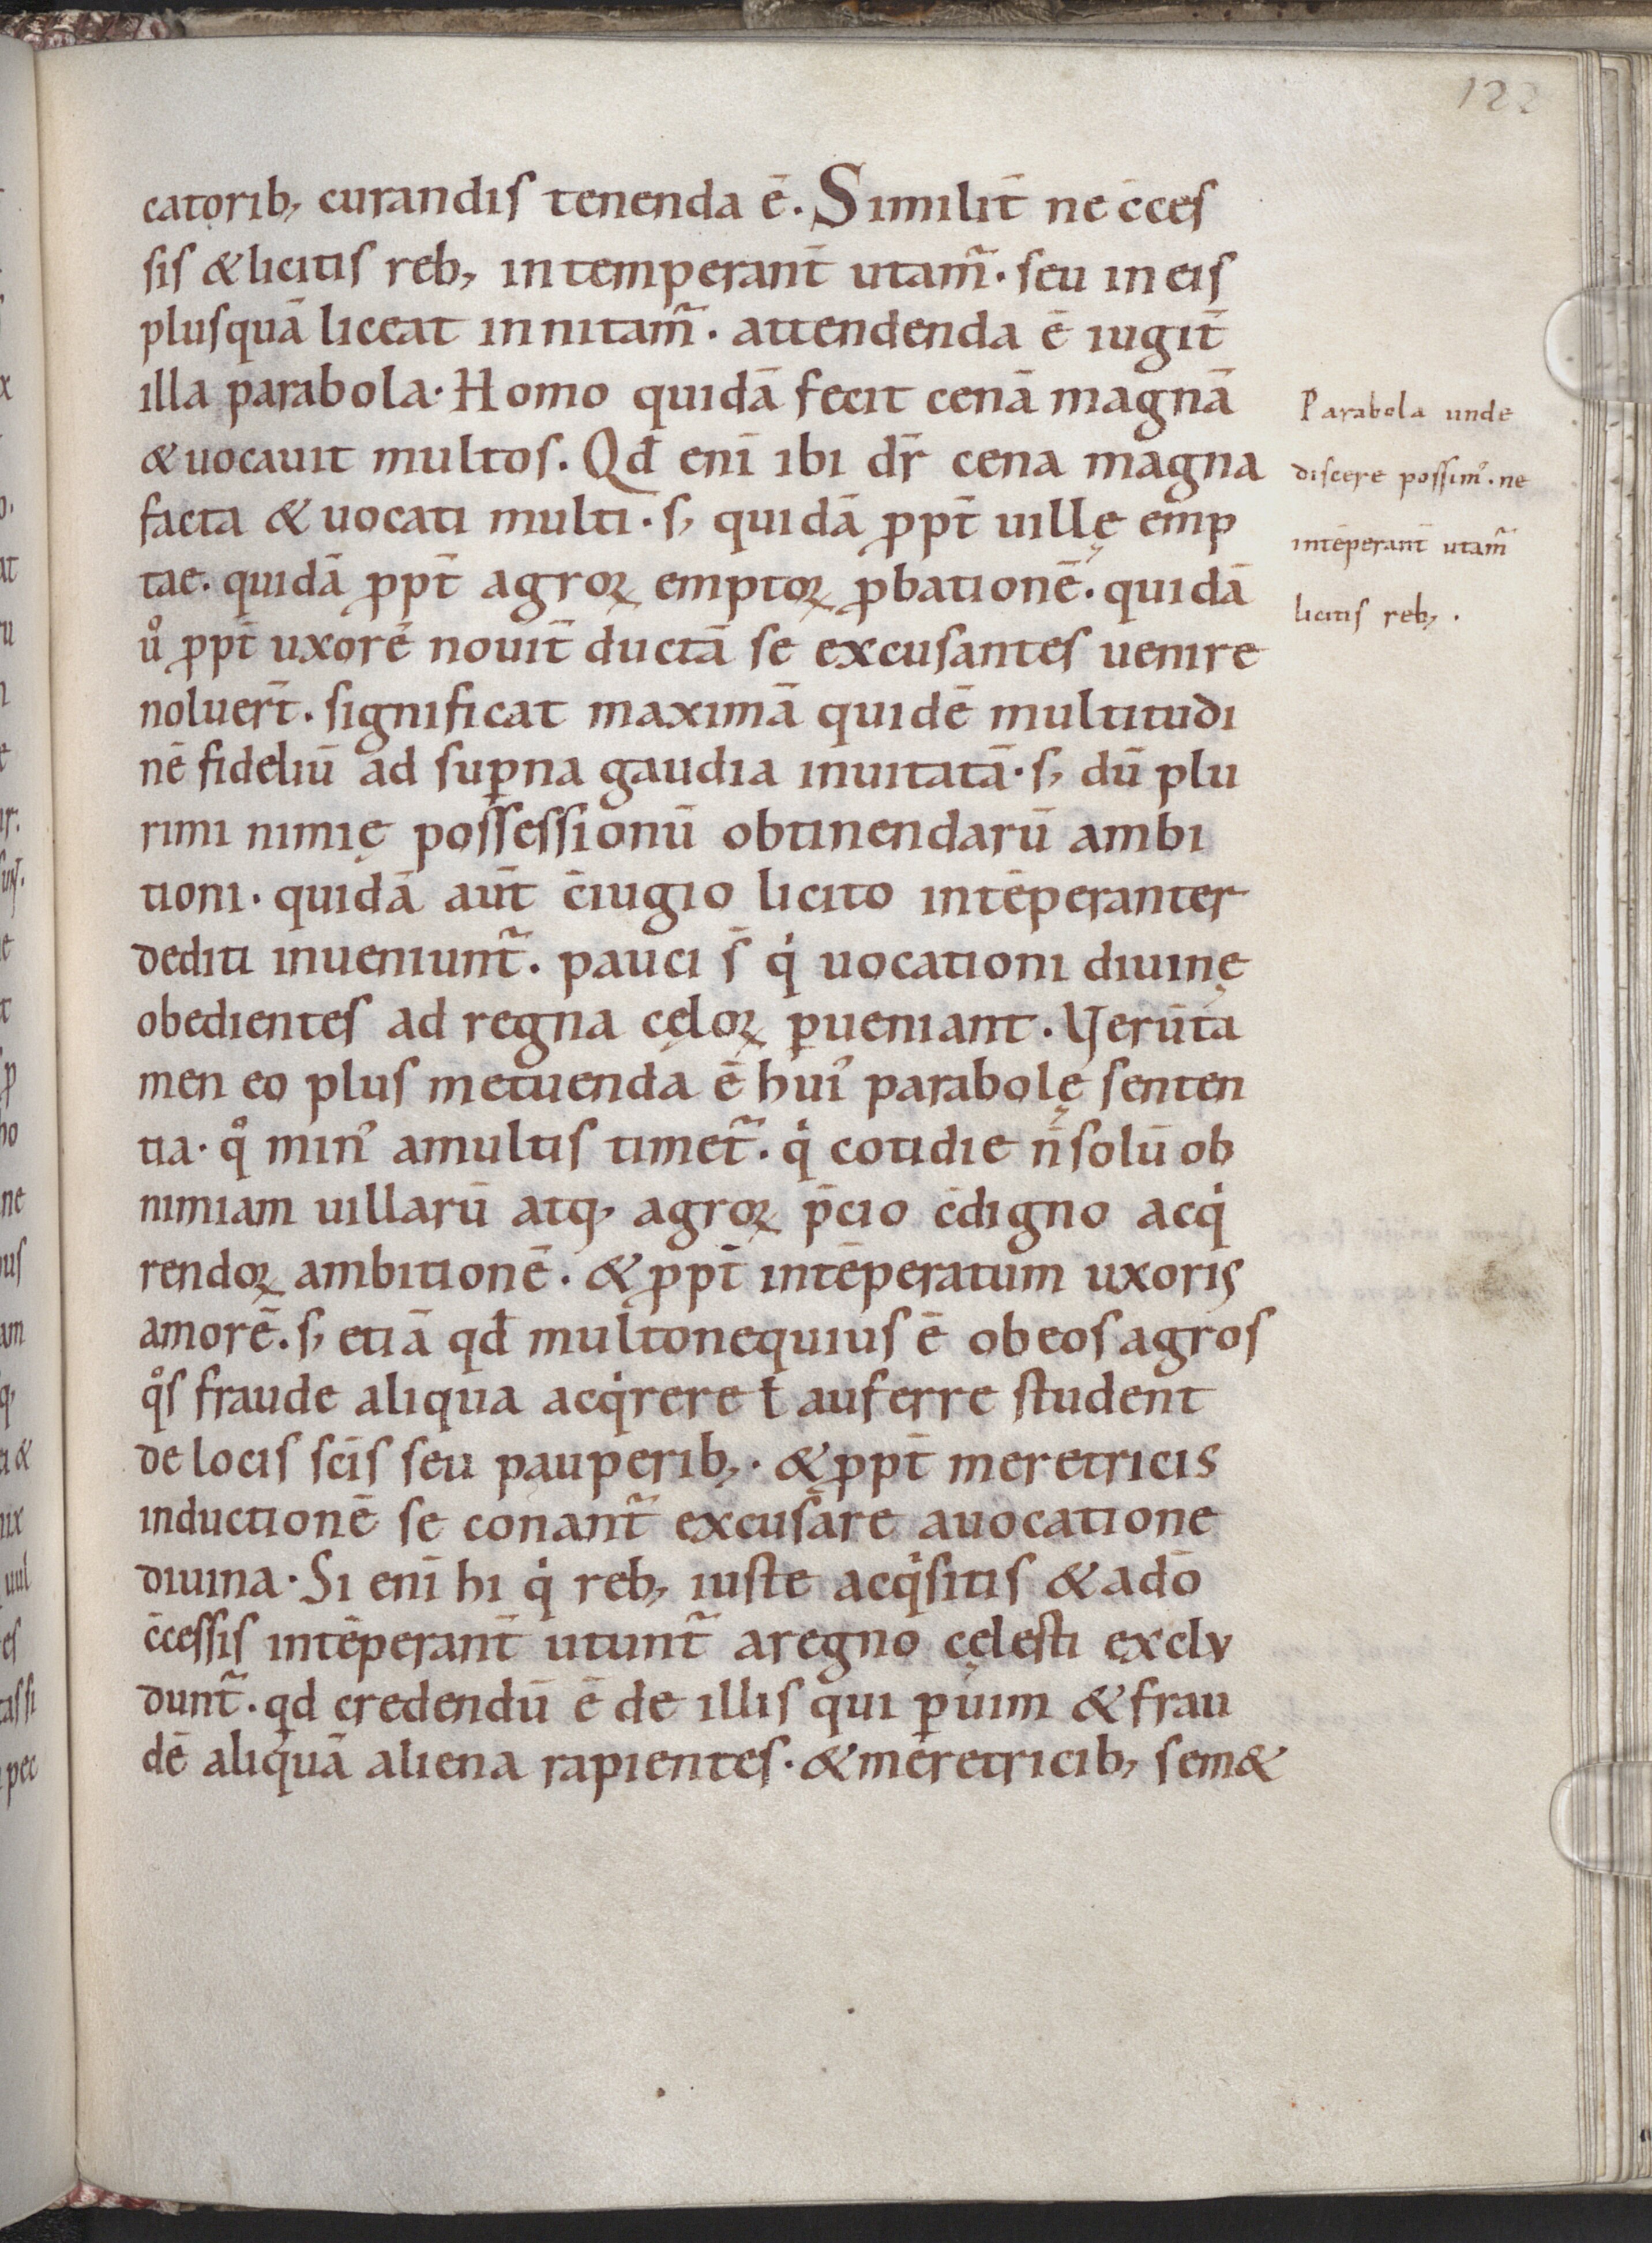 122
catorib, curandis tenenda ē. Similit̄ ne c̄ces
sis & licitis reb, intemperant̄ utam̃. seu in eis
plusquā liceat innitam̃. attendenda ē iugit̄
illa parabola. Homo quidā fecit cenā magnā
& uocauit multos. Qđ enī ibi dr̄ cena magna
facta & uocati multi. s, quidā ꝓpt̄ uillę emp
tae. quidā ꝓpt̄ agroꝝ emptoꝝ ꝓbationē. quidā
uͦ ꝓpt̄ uxorē nouit̄ ductā se excusantes uenire
noluer̄t. significat maximā quidē multitudi
nē fideliū ad suꝑna gaudia inuitatā. s, dū plu
rimi nimię possessionū obtinendarū ambi
tioni. quidā aut̄ c̄iugio licito intēperanter
dediti inueniunt̃. pauci s̄ qi uocationi diuinę
obedientes ad regna cęloꝝ ꝑueniant. Verūta
men eo plus metuenda ē hui᾽ parabolę senten
tia. qͦ min᾽ amultis timet̃. qi cotidie n̄ solū ob
nimiam uillarū atq, agroꝝ p̄cio c̄digno acqi
rendoꝝ ambitionē. & ꝓpt̄ intēperatum uxoris
amorē. s, etiā qđ multo nequius ē ob eos agros
qͦs fraude aliqua acqirere ł auferre student
de locis sc̄is seu pauperib,. & ꝓpt̄ meretricis
inductionē se conant̃ excusare auocatione
diuina. Si enī hi qi reb, iuste acqisitis & adō
c̄cessis intēperant̄ utunt̃ aregno cęlesti exclu
dunt̃. qd credendū ē de illis qui ꝑ uim & frau
dē aliquā aliena rapientes. & meretricib, sem&
Parabola unde
discere possim᾽. ne
intēperant̄ utam̃
licitis reb,.